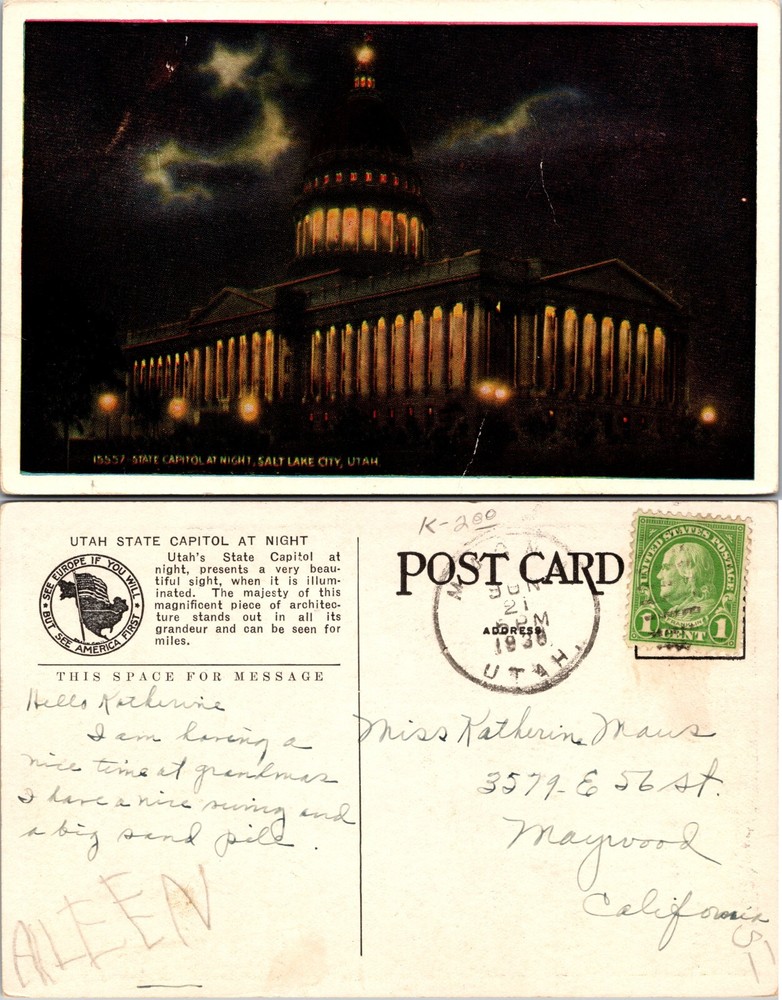 15557-STATE CAPITOL AT NIGHT, SALT LAKE CITY, UTAH
K-200
UTAH STATE CAPITOL AT NIGHT
SEE EUROPE IF YOU WILL
BUT SEE AMERICA FIRST
Utah's State Capitol at
night, presents a very beau-
tiful sight, when it is illum-
inated. The majesty of this
magnificent piece of architec-
ture stands out in all its
grandeur and can be seen for
miles.
THIS SPACE FOR MESSAGE
Hello Katherine
I am having a
nice time at grandmas
I have a nice swing and
a big sand pile.
ALEEN
POST CARD
ADDRESS
JUN
21
PM
UTAH.
UNITED STATES POSTAGE
FRANKLIN
1 CENT 1
Miss Katherine Maus
3579-E 56 St.
Maywood
California